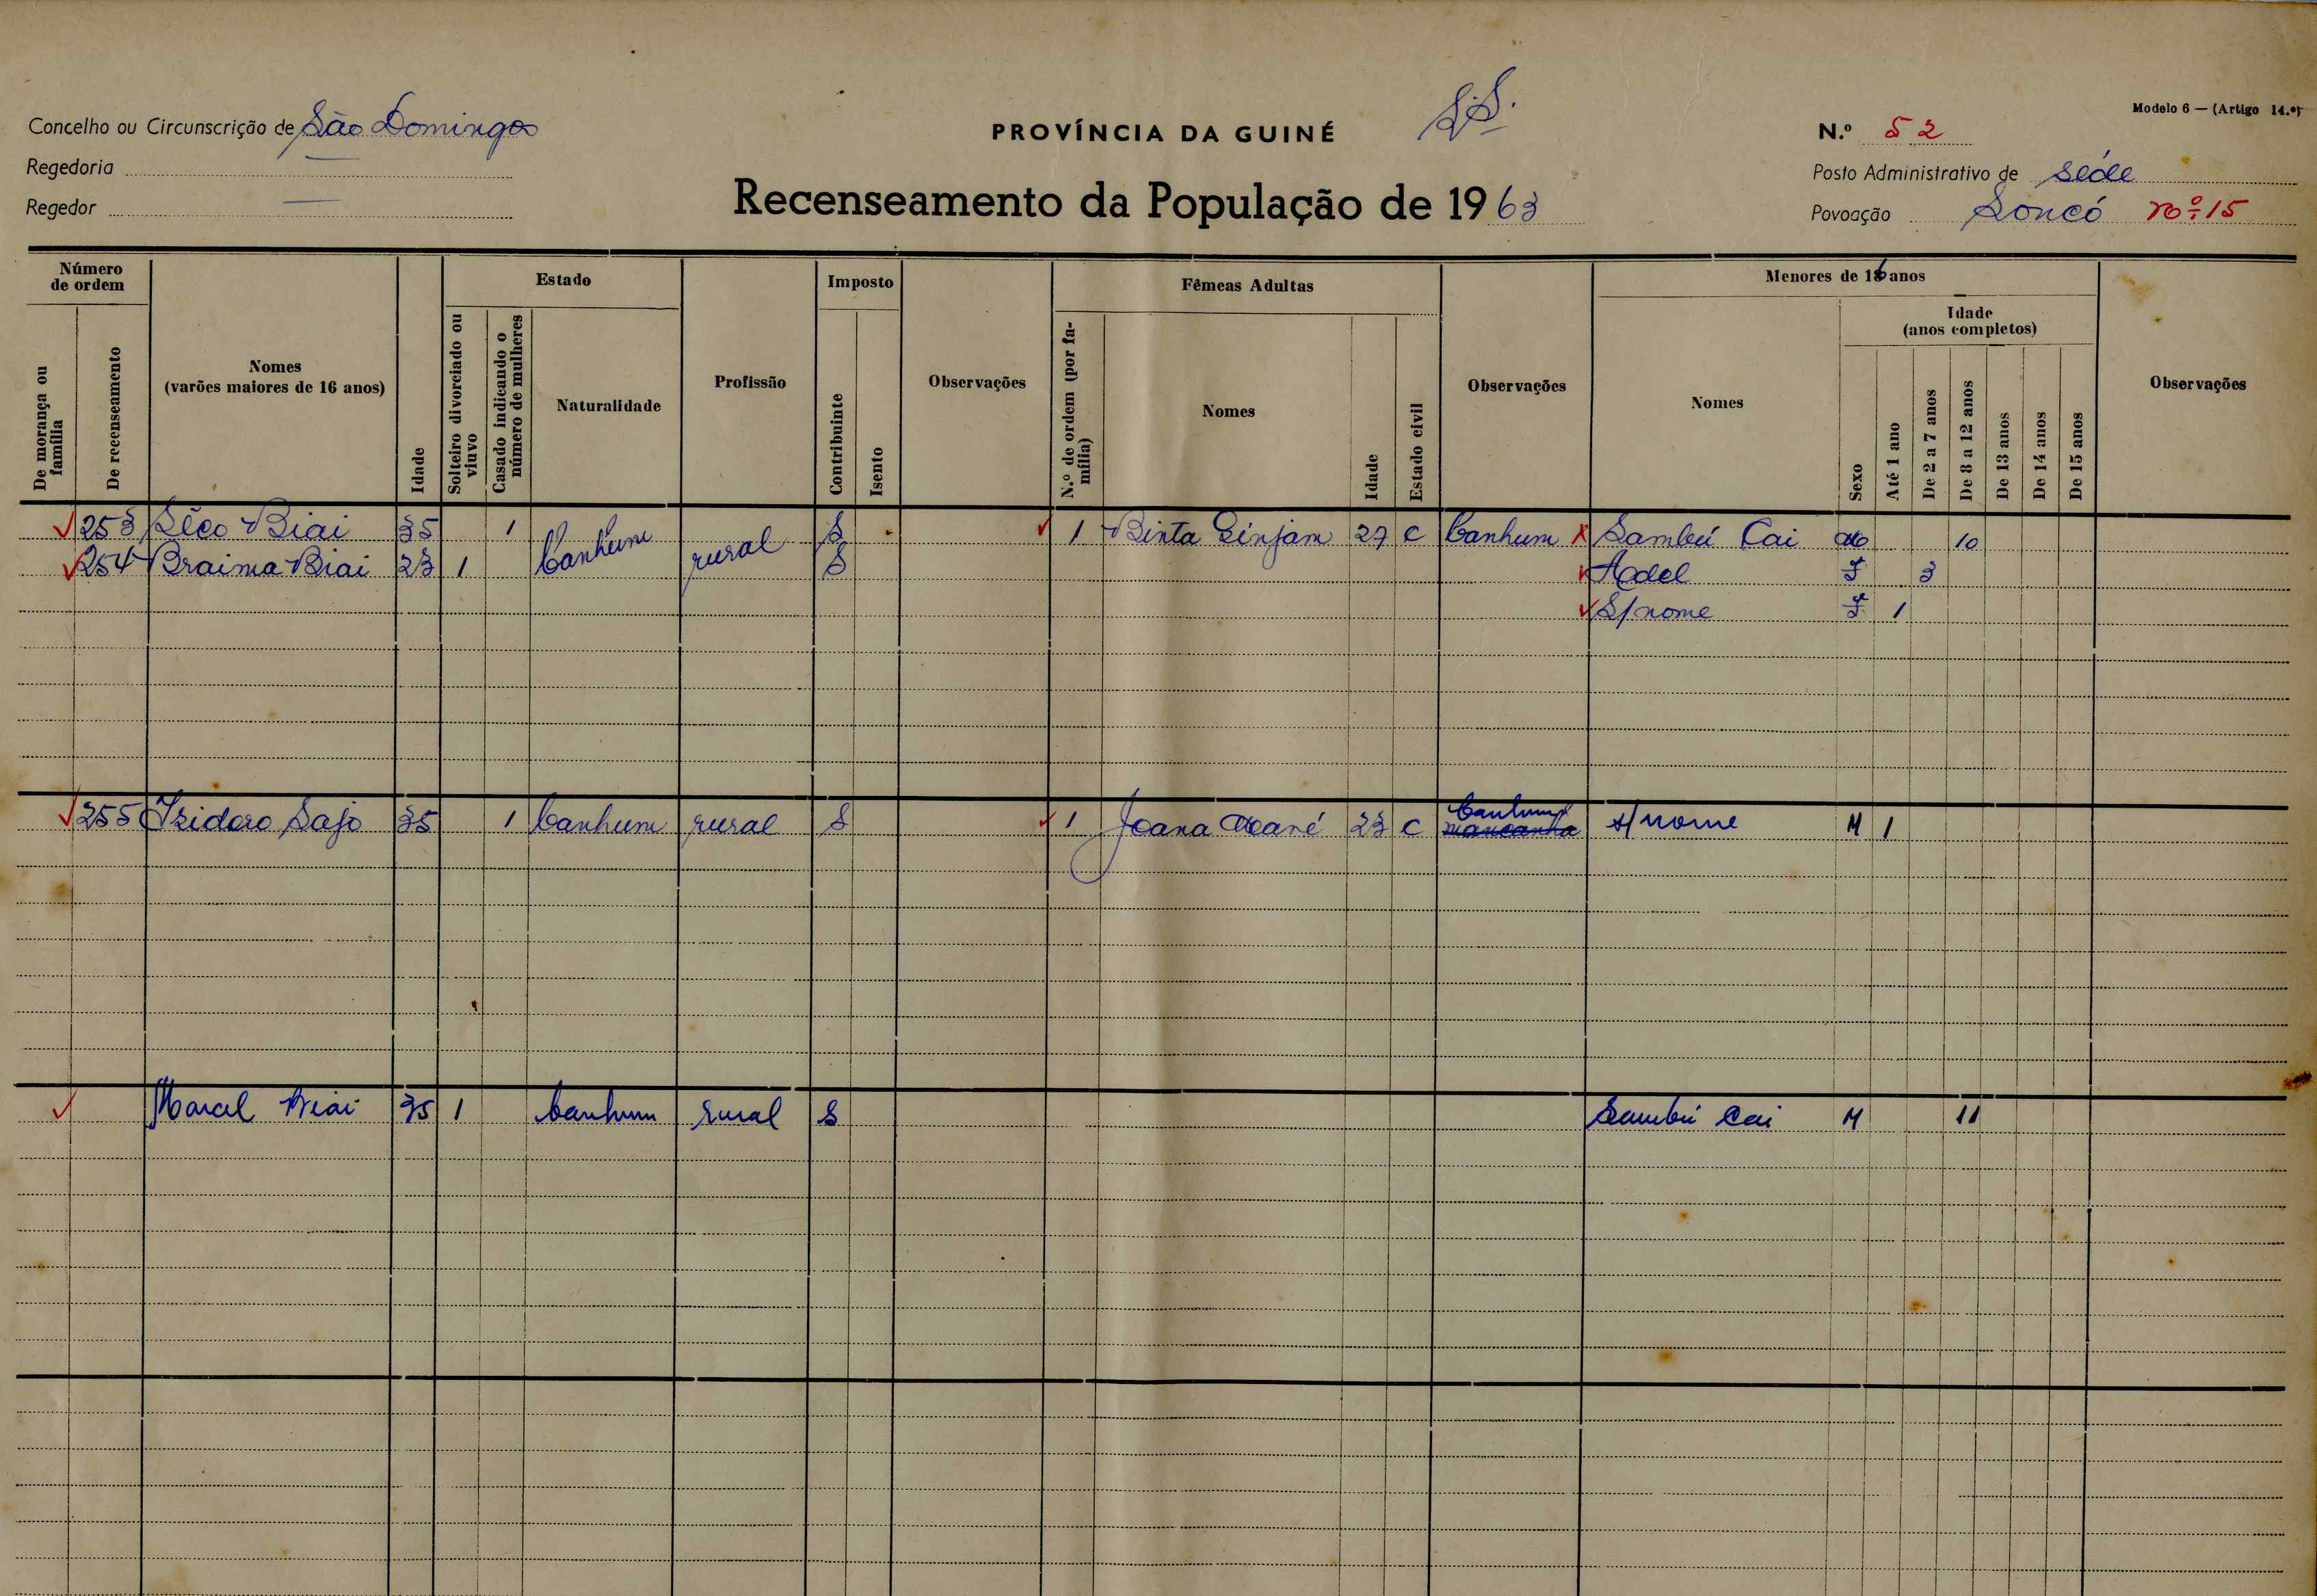 Modelo 6 — (Artigo 14.º)
Concelho ou Circunscrição de São Domingos
PROVÍNCIA DA GUINÉ
S.S.
N.º 52
Regedoria —
Posto Administrativo de Séde
Regedor —
Recenseamento da População de 1963
Povoação Soncó nº 15
Número de ordem
De morança ou família
De recenseamento
Nomes
(varões maiores de 16 anos)
Idade
Estado
Solteiro divorciado ou viuvo
Casado indicando o número de mulheres
Naturalidade
Profissão
Imposto
Contribuinte
Isento
Observações
Fêmeas Adultas
N.º de ordem (por família)
Nomes
Idade
Estado civil
Observações
Menores de 16 anos
Nomes
Sexo
Idade
(anos completos)
Até 1 ano
De 2 a 7 anos
De 8 a 12 anos
De 13 anos
De 14 anos
De 15 anos
Observações
253 Sêco Biai 35 1 Banhum rural S 1 Binta 27 C Banhum Sambú Cai M 10
254 Braima Biai 23 1 S Adel F 3
S/nome F 1
255 Izidoro Sajo 35 1 Banhum rural S 1 Joana Mané 23 C Banhum mancanha s/nome M 1
Marcel Biai 35 1 Banhum rural S Sambú Cai M 11